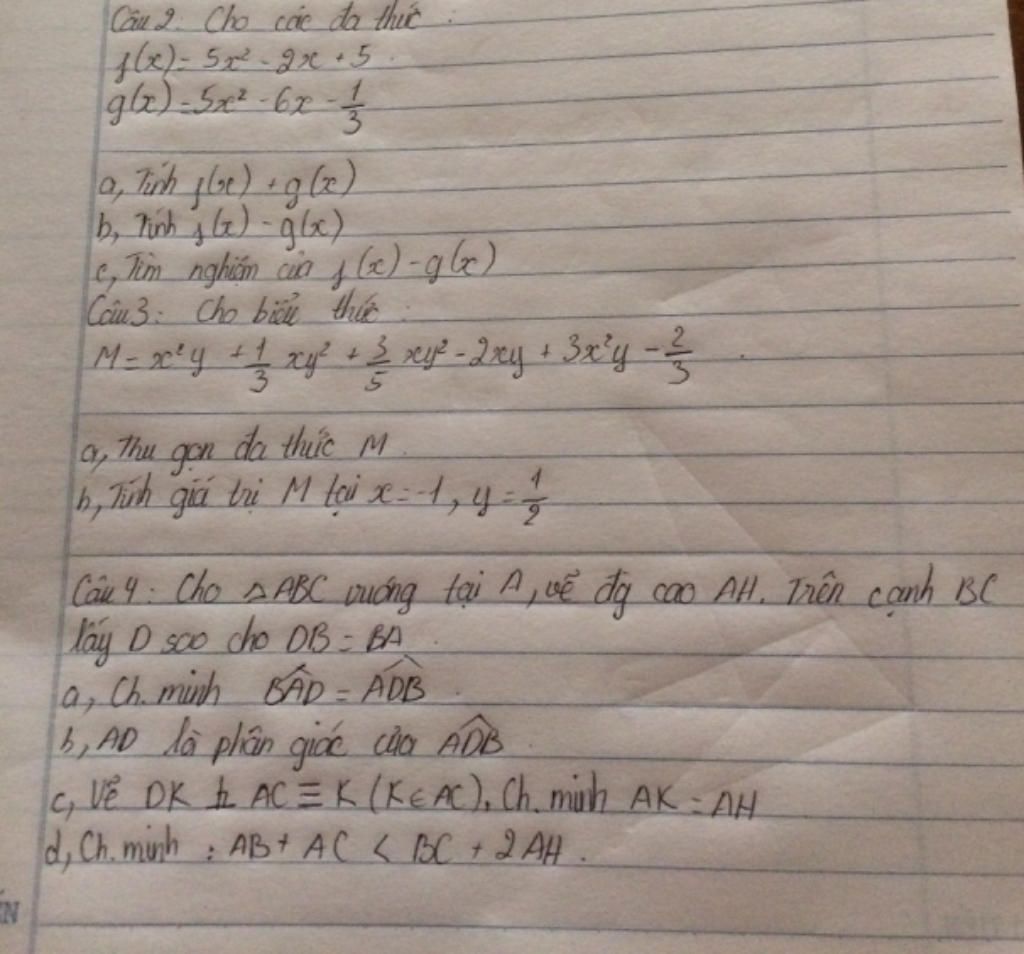 Câu 2: Cho các đa thức :
f(x) = 5x² - 2x + 5.
g(x) = 5x² - 6x - 1/3
a, Tính f(x) + g(x)
b, Tính f(x) - g(x)
c, Tìm nghiệm của f(x) - g(x)
Câu 3: Cho biểu thức :
M = x²y + 1/3 xy² + 3/5 xy² - 2xy + 3x²y - 2/3 .
a, Thu gọn đa thức M.
b, Tính giá trị M tại x = -1, y = 1/2
Câu 4: Cho △ABC vuông tại A, vẽ đg cao AH. Trên cạnh BC
lấy D sao cho DB = BA.
a, Ch. minh B̂AD = ÂDB.
b, AD là phân giác của ÂDB.
c, Vẽ DK ⊥ AC ≡ K (K ∈ AC), Ch. minh AK = AH
d, Ch. minh : AB + AC < BC + 2AH .